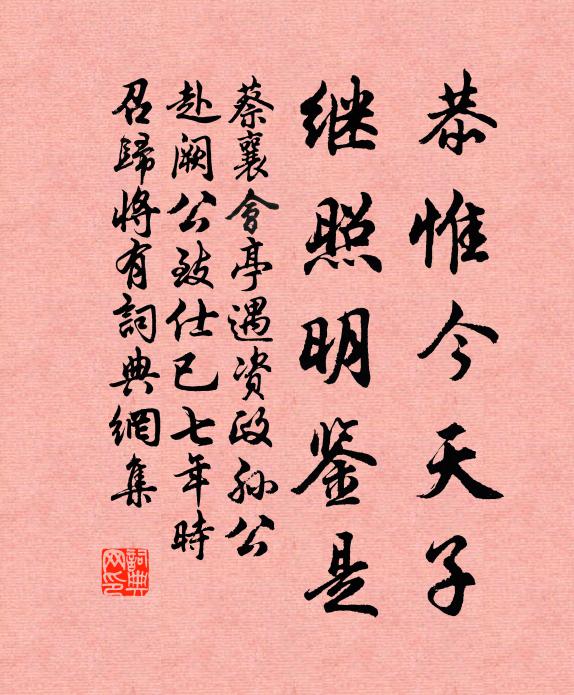 恭惟今天子
继照明鉴是
蔡襄會亭遇资政孙公
赴阙公致仕已七年時
召歸將有詞典網集
詞典网印